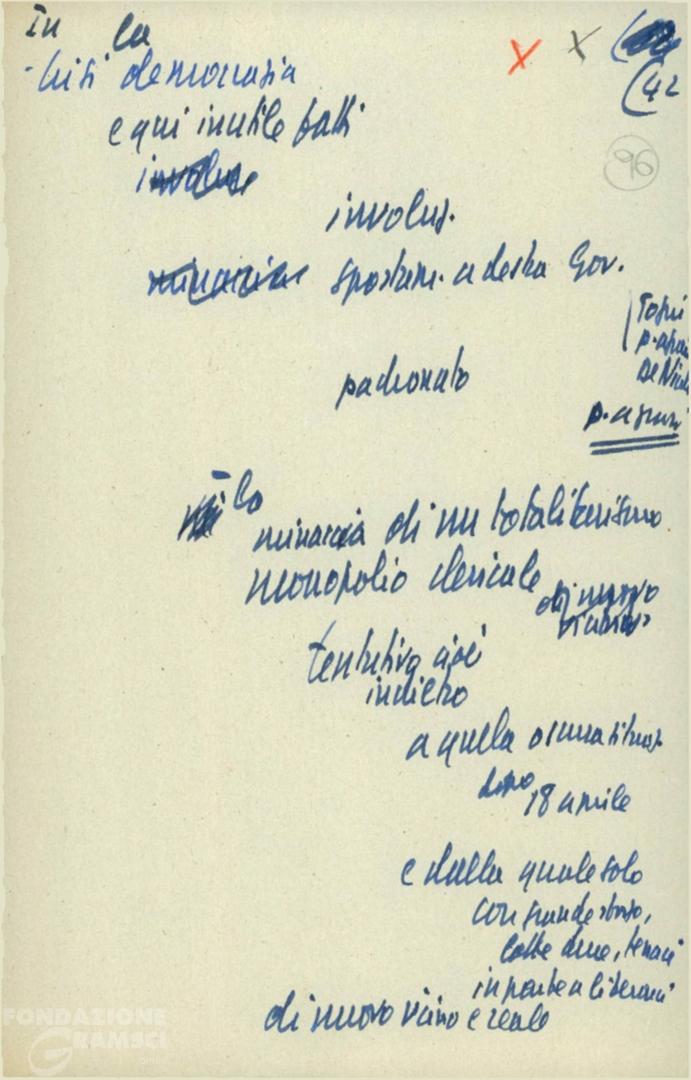 In la
- crisi democrazia
(42
e qui inutile fatti
96
involuz.
involuz.
minaccia spostam. a destra Gov.
Togni
p. agrari
De Nicola
padronato
p. agrari
la
minaccia di un totalitarismo
monopolio clericale
di nuovo
vicino
tentativo cioè
indietro
a quella oscura situaz.
dopo 18 aprile
e dalla quale solo
con grande sforzo,
lotte dure, tenaci
in parte a liberarci
di nuovo vicino e reale
FONDAZIONE
GRAMSCI